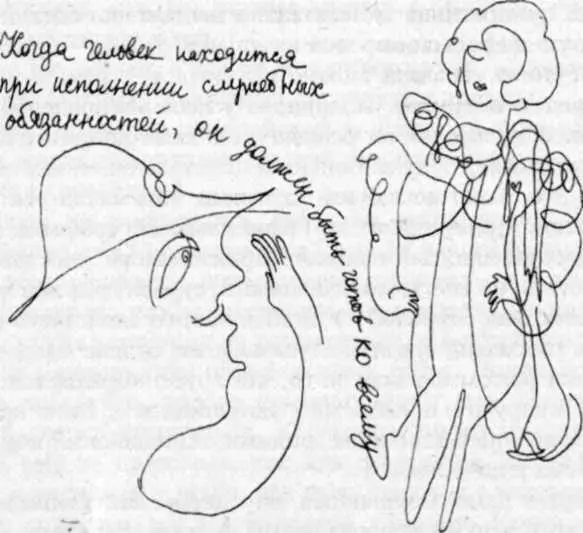 Когда человек находится
при исполнении служебных
обязанностей, он должен быть готов ко всему